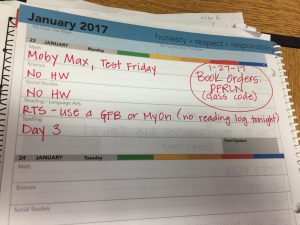 January 2017
honesty • respect • responsibility
23 JANUARY Monday
Math
Moby Max, Test Friday
Science
No HW
Social Studies
No HW
Reading / Language Arts
RTS - use a GPB or MyOn (no reading log tonight)
Spelling
Day 3
1-27-17
Book Orders:
(class code)
Parent Signature
24 JANUARY Tuesday
Math
Science
Social Studies